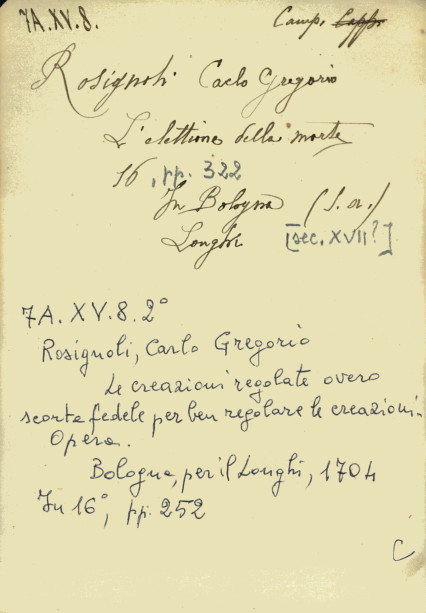 7A.XV.8.
Camp. Capp.
Rosignoli Carlo Gregorio
L'elettione della morte
16, pp. 322
In Bologna (s. a.)
Longhi [sec. XVII?]
7A.XV.8.2°
Rosignoli, Carlo Gregorio
Le creazioni regolate overo
scorta fedele per ben regolare le creazioni.
Opera.
Bologna, per il Longhi, 1704
In 16°, pp. 252
C